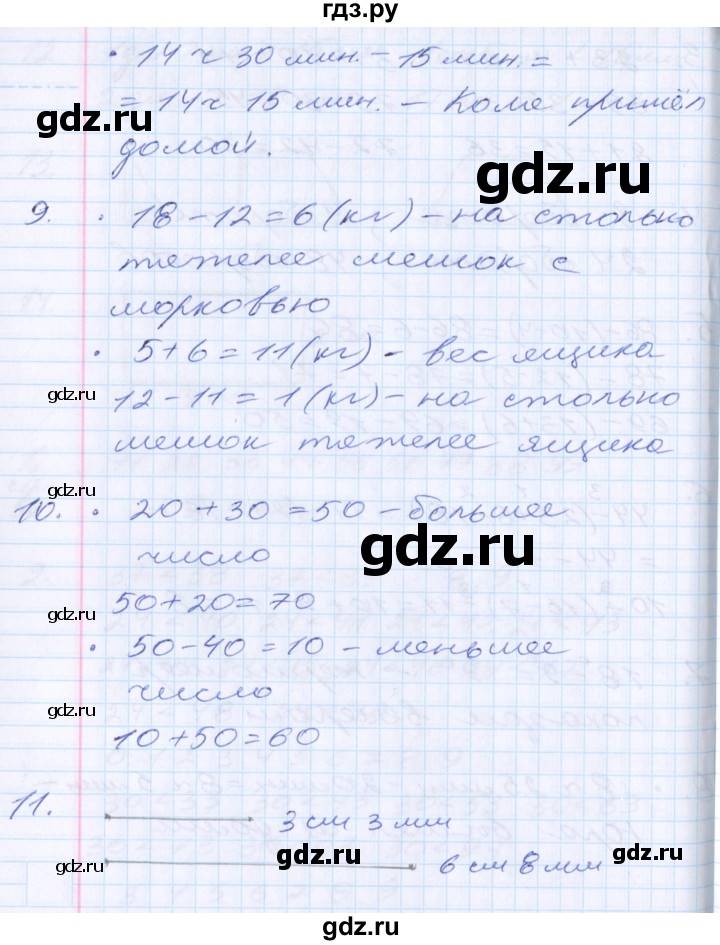 гдз.ру
· 14 ч 30 мин. – 15 мин. =
= 14 ч 15 мин. – Коме пришёл
gdz.ru
домой.
9. · 18 – 12 = 6 (кг) – на столько
тежелее мешок с
морковью
· 5 + 6 = 11 (кг) – вес ящика
gdz.ru
12 – 11 = 1 (кг) – на столько
мешок тежелее ящика
10. · 20 + 30 = 50 – большее
gdz.ru
число
50 + 20 = 70
gdz.ru
· 50 – 40 = 10 – меньшее
число
gdz.ru
10 + 50 = 60
11. 3 см 3 мм
gdz.ru
gdz.ru
gdz.ru
6 см 8 мм
gdz.ru